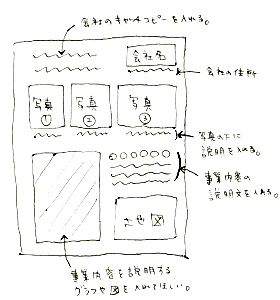 会社のキャッチコピーを入れる。
会社名
会社の住所
写真 写真 写真
① ② ③
写真の下に
説明を入れる。
事業内容の
説明文を入れる。
地図
事業内容を説明する
グラフや図を入れてほしい。